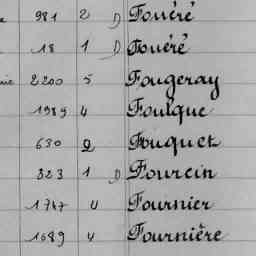 981 2 D Fouéré
18 1 D Fouéré
2200 5 Fougeray
1989 4 Foulque
630 2 Fouquet
323 1 D Fourcin
1747 4 Fournier
1689 4 Fournière